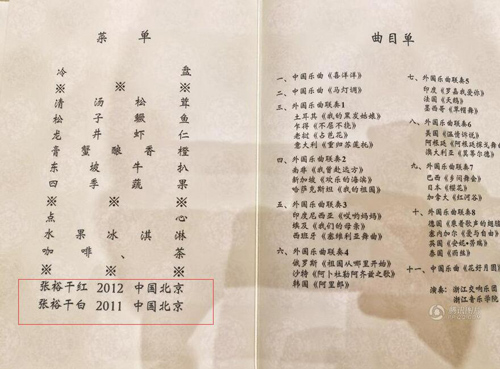 菜 单
冷 盘
※ ※
清 汤 松 茸
松 子 鳜 鱼
龙 井 虾 仁
膏 蟹 酿 香 橙
东 坡 牛 扒
四 季 蔬 果
※ ※ ※
点 心
水 果 冰 淇 淋
咖 啡、 茶
※ ※ ※
张裕干红 2012 中国北京
张裕干白 2011 中国北京
曲目单
一、中国乐曲《喜洋洋》
二、中国乐曲《马灯调》
三、外国乐曲联奏1
土耳其《我的黑发姑娘》
乍得《不屈不挠》
老挝《占芭花》
意大利《重归苏莲托》
四、外国乐曲联奏2
南非《我曾赴远方》
新加坡《欢乐的海滨》
哈萨克斯坦《我的祖国》
五、外国乐曲联奏3
印度尼西亚《哎哟妈妈》
埃及《我们的母亲》
西班牙《塞维利亚舞曲》
六、外国乐曲联奏4
俄罗斯《祖国从哪里开始》
沙特《阿卜杜勒阿齐兹之歌》
韩国《阿里郎》
七、外国乐曲联奏5
印度《罗嘉我爱你》
法国《天鹅》
墨西哥《草帽舞》
八、外国乐曲联奏6
美国《温情诉说》
阿根廷《阿根廷探戈舞曲》
澳大利亚《莫蒂尔德》
九、外国乐曲联奏7
巴西《乡间舞会》
日本《樱花》
加拿大《红河谷》
十、外国乐曲联奏8
德国《乘着歌声的翅膀》
塞内加尔《爱与自由》
英国《安妮·劳瑞》
泰国《雨丝》
十一、中国乐曲《花好月圆》
演奏：浙江交响乐团
浙江音乐学院